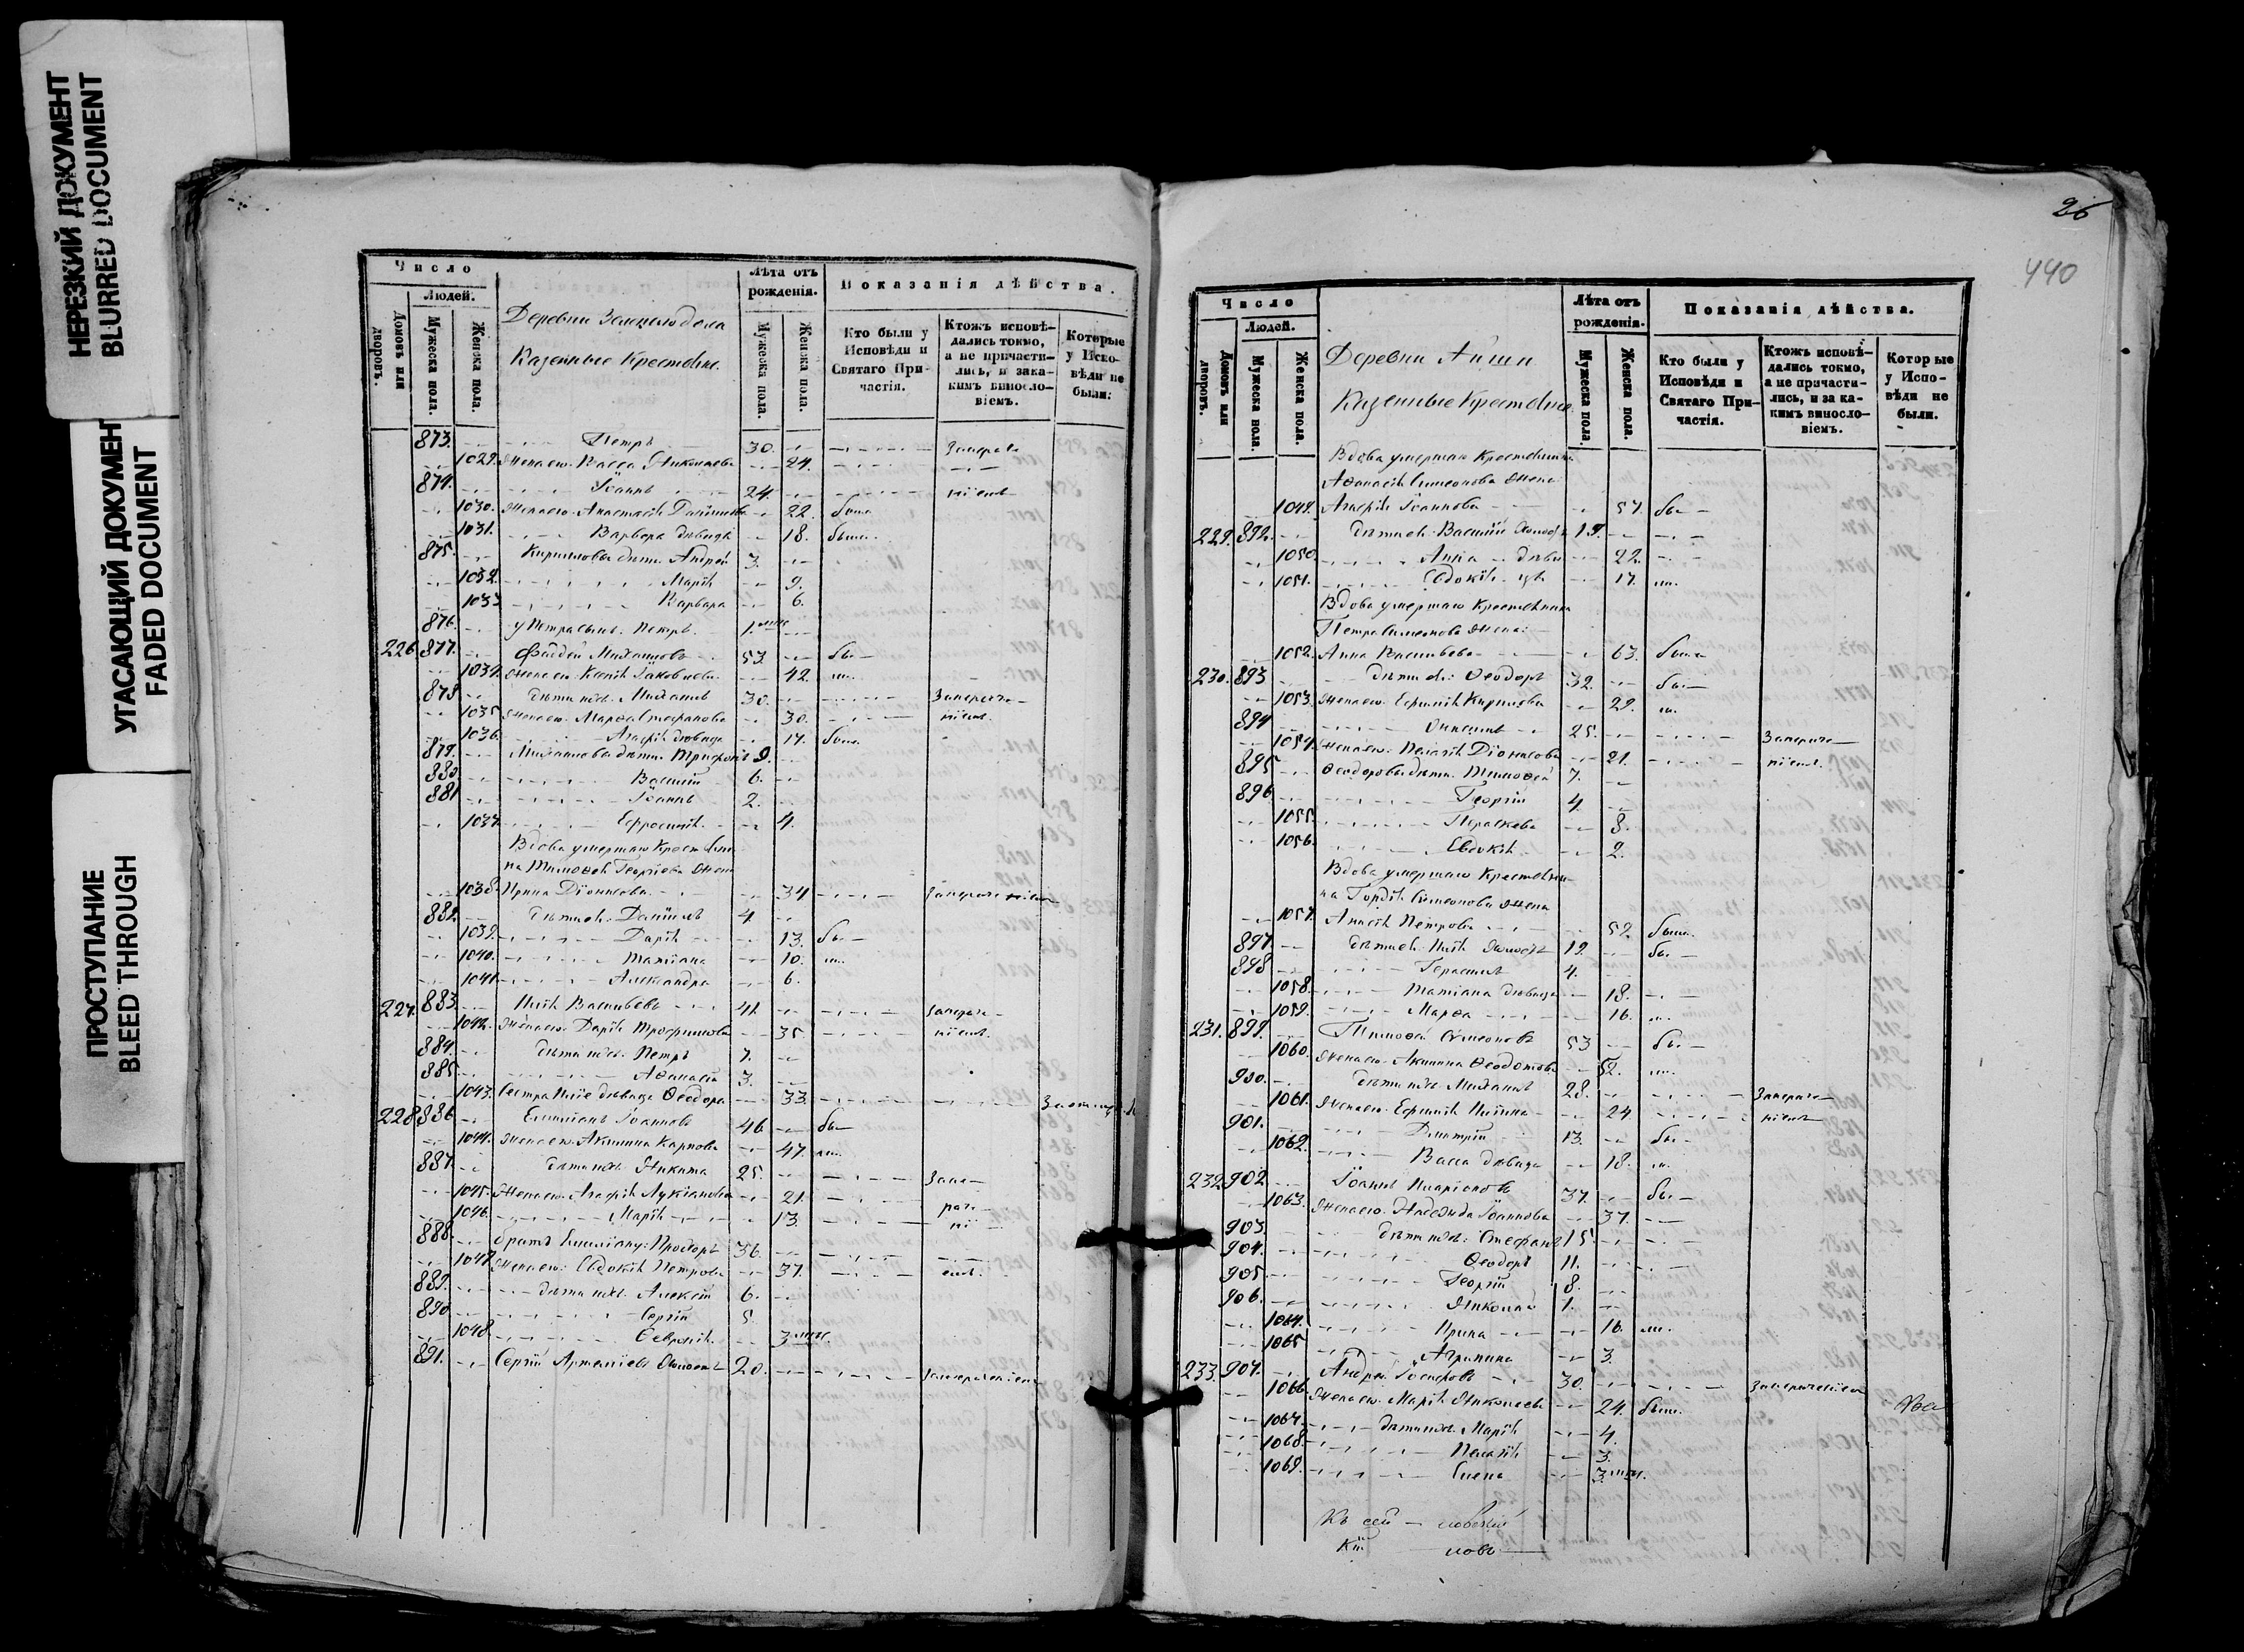 НЕРЕЗКИЙ ДОКУМЕНТ
BLURRED DOCUMENT
УГАСАЮЩИЙ ДОКУМЕН
FADED DOCUMENT
ПРОСТУПАНИЕ
BLEED THROUGH
Число
Людей.
Домовъ или дворовъ.
Мужеска пола.
Женска пола.
Деревни
Казенные Крестьяне.
Лѣта отъ рожденія.
Мужеска пола.
Женска пола.
Показанія дѣйства.
Кто были у Исповѣди и Святаго Причастія.
Ктожъ исповѣдались токмо, а не причастились, и за какимъ винословіемъ.
Которые у Исповѣди не были.
873. Петръ 30.
1029. Жена его Васса 24.
874. Іоаннъ 24.
1030. Жена его Анастасія 22. была
1031. Варвара дѣвица 18. была
875. Кирилловы дѣти Андрей 3.
1032. Марія 9.
1033 Варвара 6.
876. у Петра сынъ Петръ 1.
226 877. Фаддей Михаиловъ 53. бы
1034. Жена его Ксенія Іаковлева 42. ла
878 дѣти ихъ Михаилъ 30.
1035 Жена его Марѳа Стефанова 30.
1036. Агафія дѣвица 17. была
879. Михаиловы дѣти Трифонъ 9.
880. Василій 6.
881 Іоаннъ 2.
1037. Ефросинія 4.
Вдова умершаго Крестьяни
на Тимоѳея Георгіева жена
1038. Ирина Діонисова 34
882. дѣти ея: Даніилъ 4.
1039. Дарія 13. бы
1040. Татіана 10. ла
1041 Александра 6.
227. 883. Илія Васильевъ 41.
1042. Жена его Дарія Трофимова 35
884. дѣти ихъ Петръ 7.
885. Аѳанасій 3.
1043. Сестра Иліи дѣвица Ѳеодора 33.
228 886. Емиліанъ Іоанновъ 46. бы
1044. Жена его Акилина Карпова 47. ла
887. дѣти ихъ Никита 25.
1045. Жена его Агафія Лукіанова 21.
1046. Марія 13.
888. братъ Емиліану: Прохоръ 36.
1047 Жена его: Евдокія Петрова 37.
889. дѣти ихъ Алексій 6.
890 Сергій 5.
1048. 3 мѣс.
891. Сергій Артеміевъ Холостъ 20.
26
440
Число
Людей.
Домовъ или дворовъ.
Мужеска пола
Женска пола.
Деревни Айши
Казенные Крестьяне.
Лѣта отъ рожденія.
Мужеска пола.
Женска пола.
Показанія дѣйства.
Кто были у Исповѣди и Святаго Причастія.
Ктожъ исповѣдались токмо, а не причастились, и за какимъ винословіемъ.
Которые у Исповѣди не были.
Вдова умершаго Крестьянина
Аѳанасія Симеонова жена
1049. Агафія Іоаннова 57. бы
229. 892. дѣти ея: Василій Холостъ 19.
1050. Анна дѣви 22.
1051. Евдокія ца 17. ли.
Вдова умершаго Крестьянина
Петра Симеонова жена:
1052. Анна Васильева 63. была
230. 893 дѣти ея: Ѳеодоръ 32. бы
1053. Жена его Евфимія Кирилова 29. ли
894 25.
1054. Жена его: Пелагія Діонисова 21.
895 Ѳеодоровы дѣти Тимоѳей 7.
896. Георгій 4
1055. Параскева 8.
1056. Евдокія 2.
Вдова умершаго Крестьяни
на Гордія Симеонова жена
1057. Петрова 52. была
897. дѣти ея: Илія Холостъ 19. бы
898 Герасимъ 4.
1058. Татіана дѣвица 18.
1059. Марѳа 16. ли.
231. 899. Тимоѳей Симеоновъ 53 бы
1060. Жена его Акилина Ѳеодотова 52. ли.
900. дѣти ихъ Михаилъ 28.
1061. Жена его Евфимія Иліина 24
901. Дмитрій 13. бы
1062. Васса дѣвица 18. ли.
232 902 Іоаннъ Иларіоновъ 37. бы
1063. Жена его Надежда Іоаннова 37.
903. дѣти ихъ: Стефанъ 15.
904. Ѳеодоръ 11.
905 Георгій 8.
906. Николай 1.
1064. Ирина 16. ли.
1065 Агрипина 3.
233. 907. Андрей Іосифовъ 30.
1066. Жена его Марія Николаева 24. была
1067. дѣти ихъ Марія 4.
1068. Пелагія 3.
1069. Елена 3 мѣс.